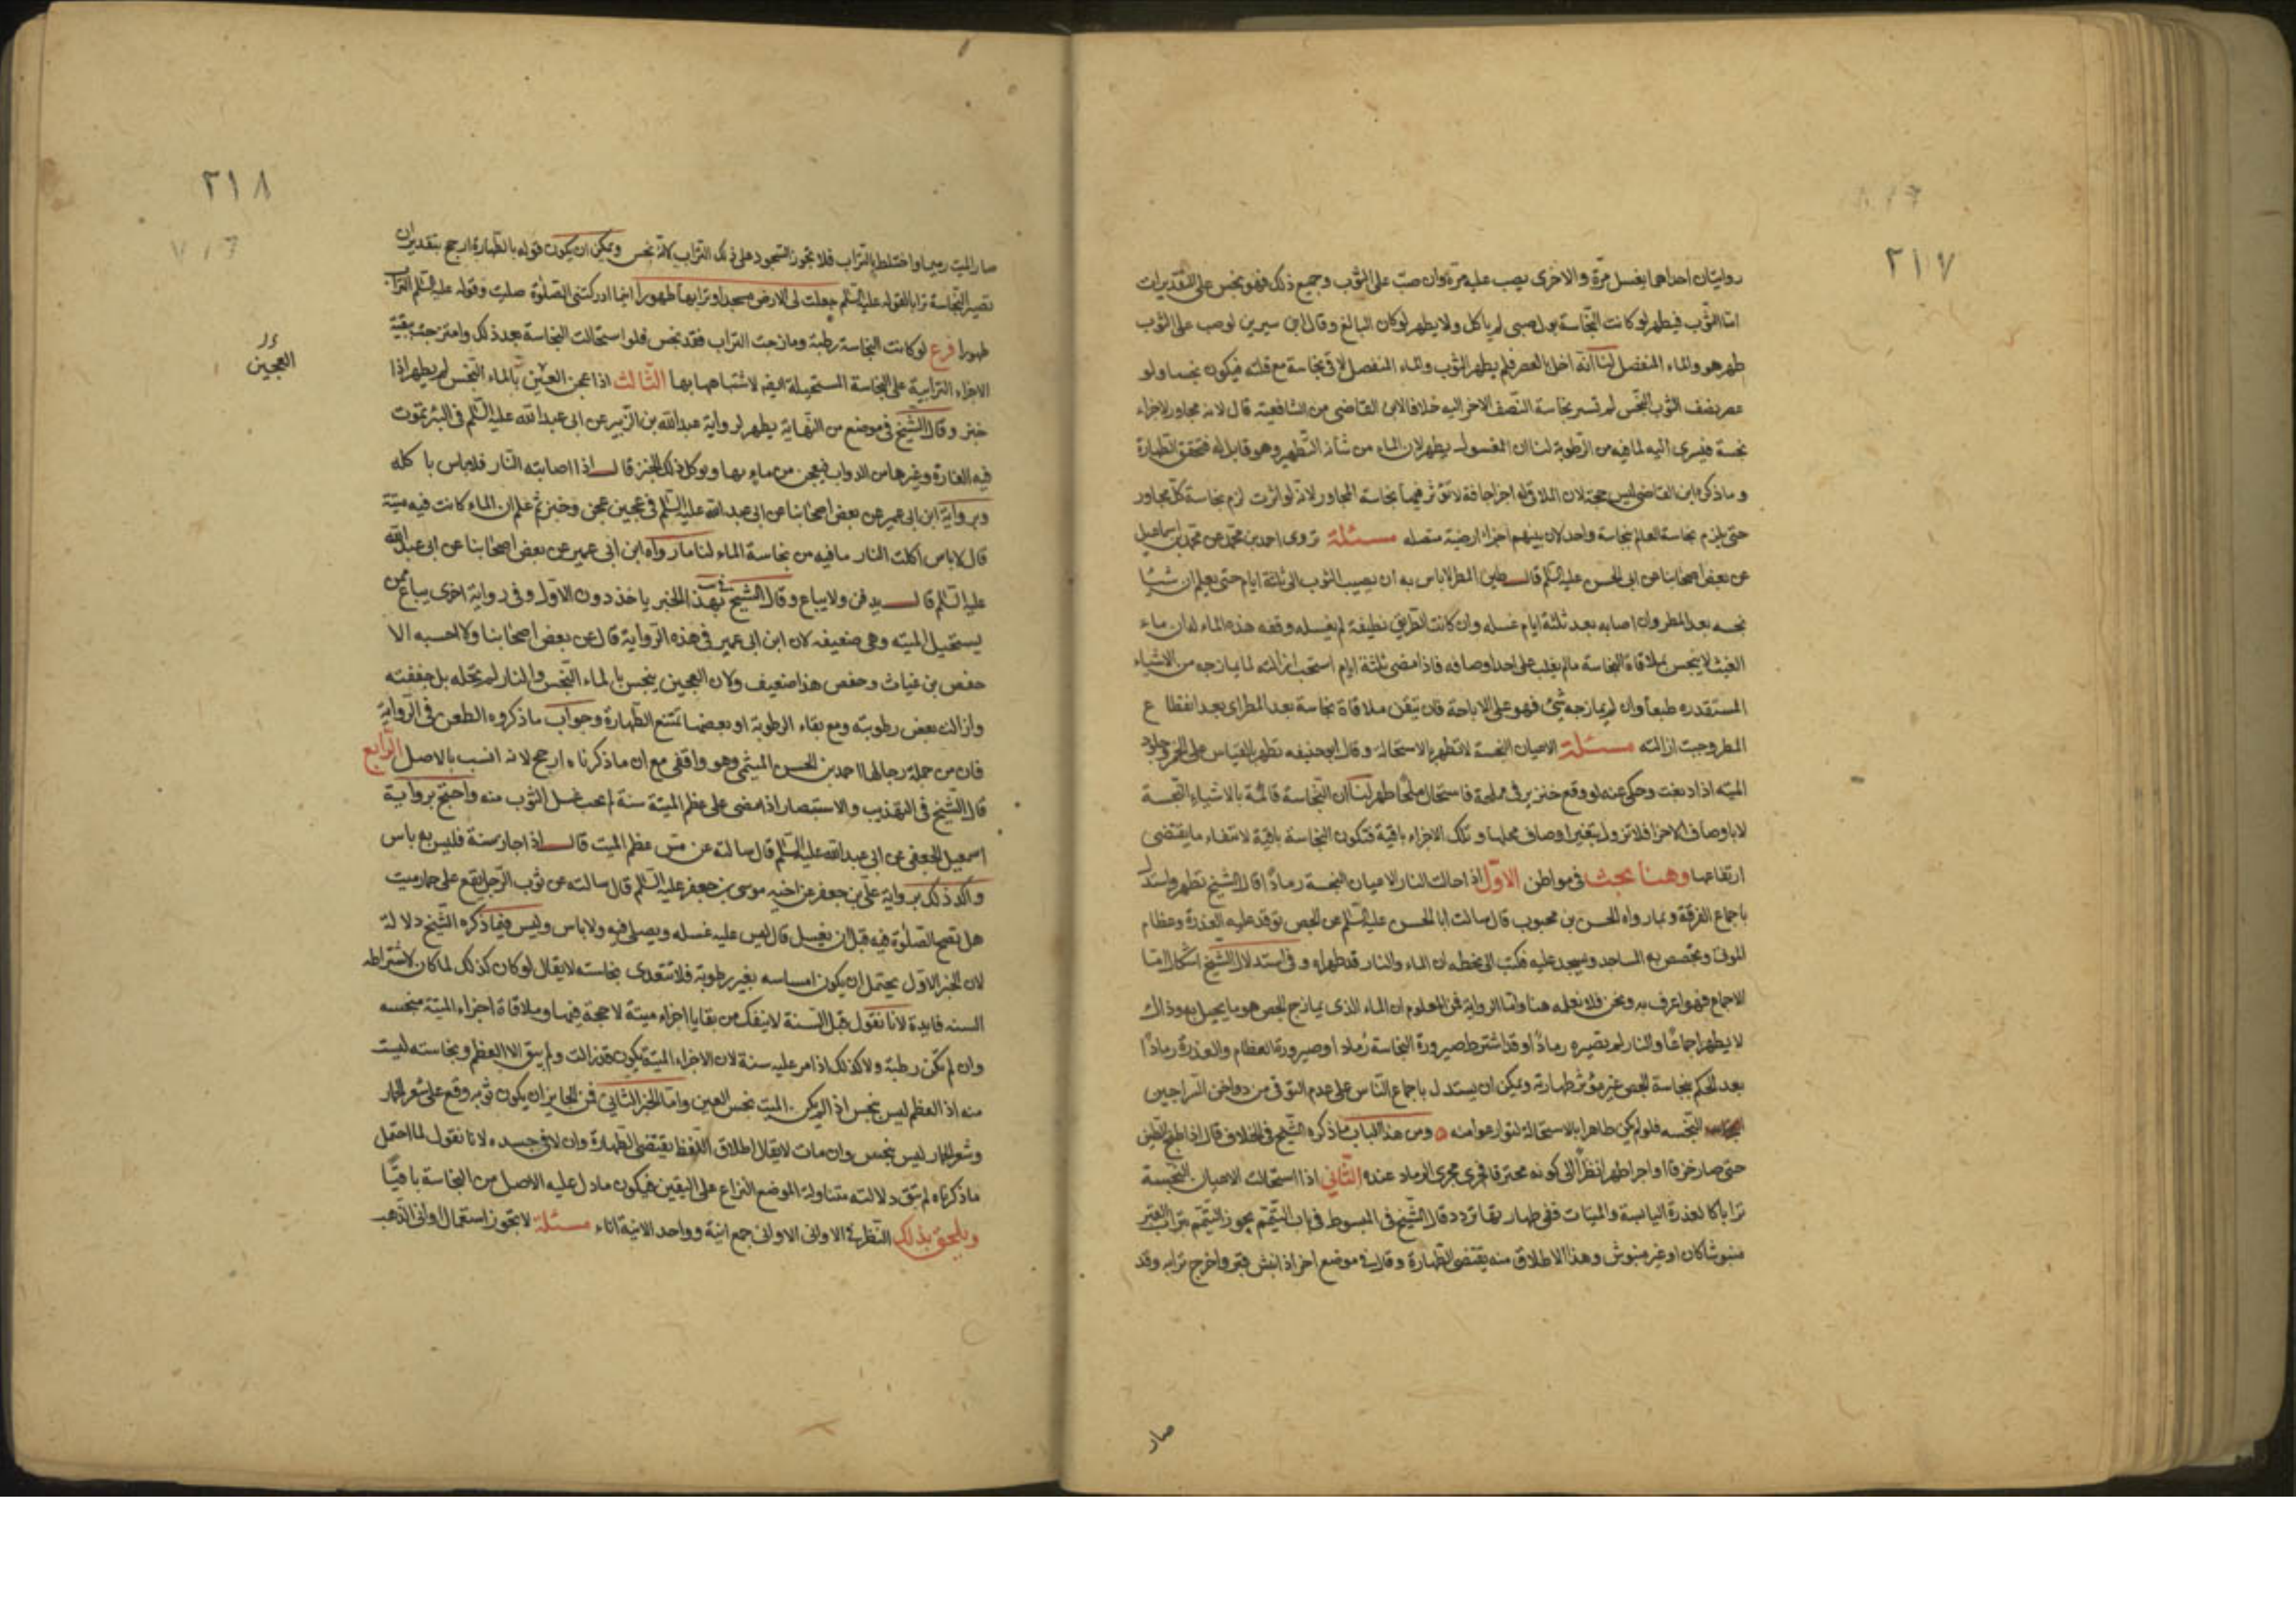 ٢١٧
روايتان احداهما يغسل مرّة والاخرى يصب عليه مرّة وان صبّ على الثوب وجميع ذلك فهو نجس على التقديرات
امّا الثوب فيطهر لو كانت النّجاسة بول صبى لم ياكل ولا يطهر لو كان البالغ وقال ابن سيرين لو صب على الثوب
طهر هو والماء المنفصل لنا انه اخل بالعصر فلم يطهر الثوب والماء المنفصل لاقى نجاسة مع قلته فيكون نجسا ولو
عصر نصف الثوب النّجس لم تسر نجاسة النّصف الاخر اليه خلافا لابن القاضى من الشافعية قال لانه مجاور لاجزاء
نجسة فيسرى اليه لما فيه من الرّطوبة لنا ان المغسول يطهر لان الماء من شانه التّطهير وهو قابل له فتحقق الطهارة
وما ذكره ابن القاضى ليس حجة لان الملاقى له اجزا جافة لا تؤثر فيها نجاسة المجاور لانّه لو اثرت لزم نجاسة كلّ مجاور
حتى يلزم نجاسة العالم بنجاسة واحد لان بينهم اجزاء ارضيّة متصله مسئلة روى احمد بن محمّد عن محمّد بن اسماعيل
عن بعض اصحابنا عن ابى الحسن عليه السّلم قال طين المطر لاباس به ان يصيب الثوب الى ثلثة ايام حتى يعلم ان شيئا
نجسه بعد المطر وان اصابه بعد ثلثة ايام غسله وان كانت الطريق نظيفة لم يغسله وقفه هذه الماء لان ماء
الغيث لا ينجس بملاقاة النجاسة مالم يغلب على احد اوصافه فاذا مضى ثلثة ايام استحب ازالته لما يمازجه من الاشياء
المستقذره طبعا وان لم يمازجه شيئ فهو على الاباحة فان تيقن ملاقاة نجاسة بعد المطر اى بعد انقطاع
المطر وجبت ازالته مسئلة الاعيان النجسة لا تطهر بالاستحالة وقال ابو حنيفه تطهر بالقياس على الخمر وجلود
الميته اذا دبغت وحكى عنه لو وقع خنزير فى مملحة فاستحال ملحا طهر لنا ان النّجاسة قائمة بالاشياء النّجسة
لا باوصاف الاجزا فلا تزول بتغير اوصاف محلها وتلك الاجزاء باقية فتكون النجاسة باقية لانتفاء ما يقتضى
ارتفاعها وهنا بحث فى مواطن الاوّل اذا احالت النار الاعيان النجسة رمادًا قال الشيخ تطهر واستدل
باجماع الفرقة وبما رواه الحسن بن محبوب قال سالت ابا الحسن عليه السّلم عن الجص توقد عليه العذرة وعظام
الموتى ويجصص به المساجد ويسجد عليه فكتب الىّ بخطه ان الماء والنار قد طهراه وفى استدلال الشيخ اشكال امّا
الاجماع فهو اعرف به ونحن فلا نعلمه هنا وامّا الرواية فمن المعلوم ان الماء الذى يمازج الجص هو ما يحيل به وذلك
لا يطهر اجماعًا والنار لم تصيره رمادًا وقد اشترط صيرورة النجاسة رمادا وصيرورة العظام والعذرة رمادًا
بعد الحكم بنجاسة الجص غير مؤثر طهارته ويمكن ان يستدل باجماع النّاس على عدم التوقى من دواخن السّراجين
النّجسه فلو لم يكن طاهرا بالاستحالة لتورّعوا منه ومن هذا الباب ما ذكره الشيخ فى الخلاف قال اذا طبخ الطين
حتى صار خزفا او اجرا طهر نظرًا الى كونه محترقا فجرى مجرى الرماد عنده الثّانى اذا استحالت الاعيان النّجسة
ترابا كالعذرة اليابسة والميتات ففى طهارتها تردد قال الشّيخ فى المبسوط فى باب التيمّم يجوز التيمّم بتراب القبر
منبوشا كان او غير منبوش وهذا الاطلاق منه يقتضى الطّهارة وقال فى موضع اخر اذا نبش قبر واخرج ترابه وقد
صار
٢١٨
صار الميت رميما واختلط بالتراب فلا يجوز السّجود على ذلك التّراب لانّه نجس ويمكن ان يكون قوله بالطّهارة ارجح بتقدير ان
تصير النّجاسة ترابا لقوله عليه السّلم جعلت لى الارض مسجدا وترابها طهورا اينما ادركتنى الصّلوة صليت وقوله عليه السّلم التراب
طهور فرع لو كانت النجاسة رطبة ومازجت التراب فقد نجس فلو استحالت النجاسة بعد ذلك وامتزجت بقيّة
الاجزاء الترابية على النجاسة المستحيلة ايضا لاشتباهها بها الثّالث اذا عجن العجين بالماء النّجس لم يطهر اذا
العجين
خبز وقال الشّيخ فى موضع من النّهاية يطهر لرواية عبدالله بن الزّبير عن ابى عبدالله عليه السّلم فى البئر تموت
فيه الفارة وغيرها من الدواب فيعجن من مائها ويوكل ذلك الخبز قال اذا اصابته النّار فلاباس باكله
وبرواية ابن ابى عمير عن بعض اصحابنا عن ابى عبدالله عليه السّلم فى عجين عجن وخبز ثم علم ان الماء كانت فيه ميتة
قال لاباس اكلت النار مافيه من نجاسة الماء لنا ما رواه ابن ابى عمير عن بعض اصحابنا عن ابى عبدالله
عليه السّلم قال يدفن ولا يباع وقال الشيخ بهذا الخبر ياخذ دون الاوّل وفى رواية اخرى يباع ممن
يستحيل الميته وهى ضعيفه لان ابن ابى عمير فى هذه الرّواية قال عن بعض اصحابنا ولا احسبه الا
حفص بن غياث وحفص هذا ضعيف ولان العجين ينجس بالماء النّجس والنار لم تحله بل جففته
وازالت بعض رطوبته ومع بقاء الرطوبة او بعضها تمتنع الطّهارة وجواب ما ذكروه الطعن فى الرّواية
فان من جملة رجالها احمد بن الحسن الميثمى وهو واقفى مع ان ما ذكرناه ارجح لانه انسب بالاصل الرّابع
قال الشّيخ فى التهذيب والاستبصار اذا مضى على عظم الميّتة سنة لم يجب غسل الثّوب منه واحتج برواية
اسمعيل الجعفى عن ابى عبدالله عليه السّلم قال سالته عن مسّ عظم الميت قال اذا جاز سنة فليس به باس
واكّد ذلك برواية علىّ بن جعفر عن اخيه موسى بن جعفر عليه السّلم قال سالته عن ثوب الرّجل يقع على حمار ميت
هل تصح الصّلوة فيه قبل ان يغسل قال ليس عليه غسله ويصلى فيه ولاباس وليس فيما ذكره الشّيخ دلالة
لان الخبر الاوّل يحتمل ان يكون امساسه بغير رطوبة فلا تتعدى نجاسته لا يقال لو كان كذلك لما كان لاشتراط
السنه فايدة لانا نقول قبل السّنة لا ينفك من بقايا اجزاء ميتة لا حجة فيها وملاقاة اجزاء الميّتة منجسه
وان لم تكن رطبة ولا كذلك اذا مر عليه سنة لان الاجزاء الميّتة تكون قد زالت ولم يبق الا العظم ونجاسته ليست
منه اذ العظم ليس بنجس اذا لم يكن الميّت نجس العين وامّا الخبر الثّانى فمن الجايز ان يكون ثوبه وقع على شعر الحمار
وشعر الحمار ليس بنجس وان مات لا يقال اطلاق اللّفظ يقتضى الطّهارة وان لاقى جسده لانا نقول لما احتمل
ما ذكرناه لم تبق دلالته متناولة لموضع النزاع على اليقين فيكون ما دل عليه الاصل من النجاسة باقيًا
ويلحق بذلك النّظر فى الاوانى الاوانى جمع انية وواحد الانية اناء مسئلة لا يجوز استعمال اوانى الذّهب